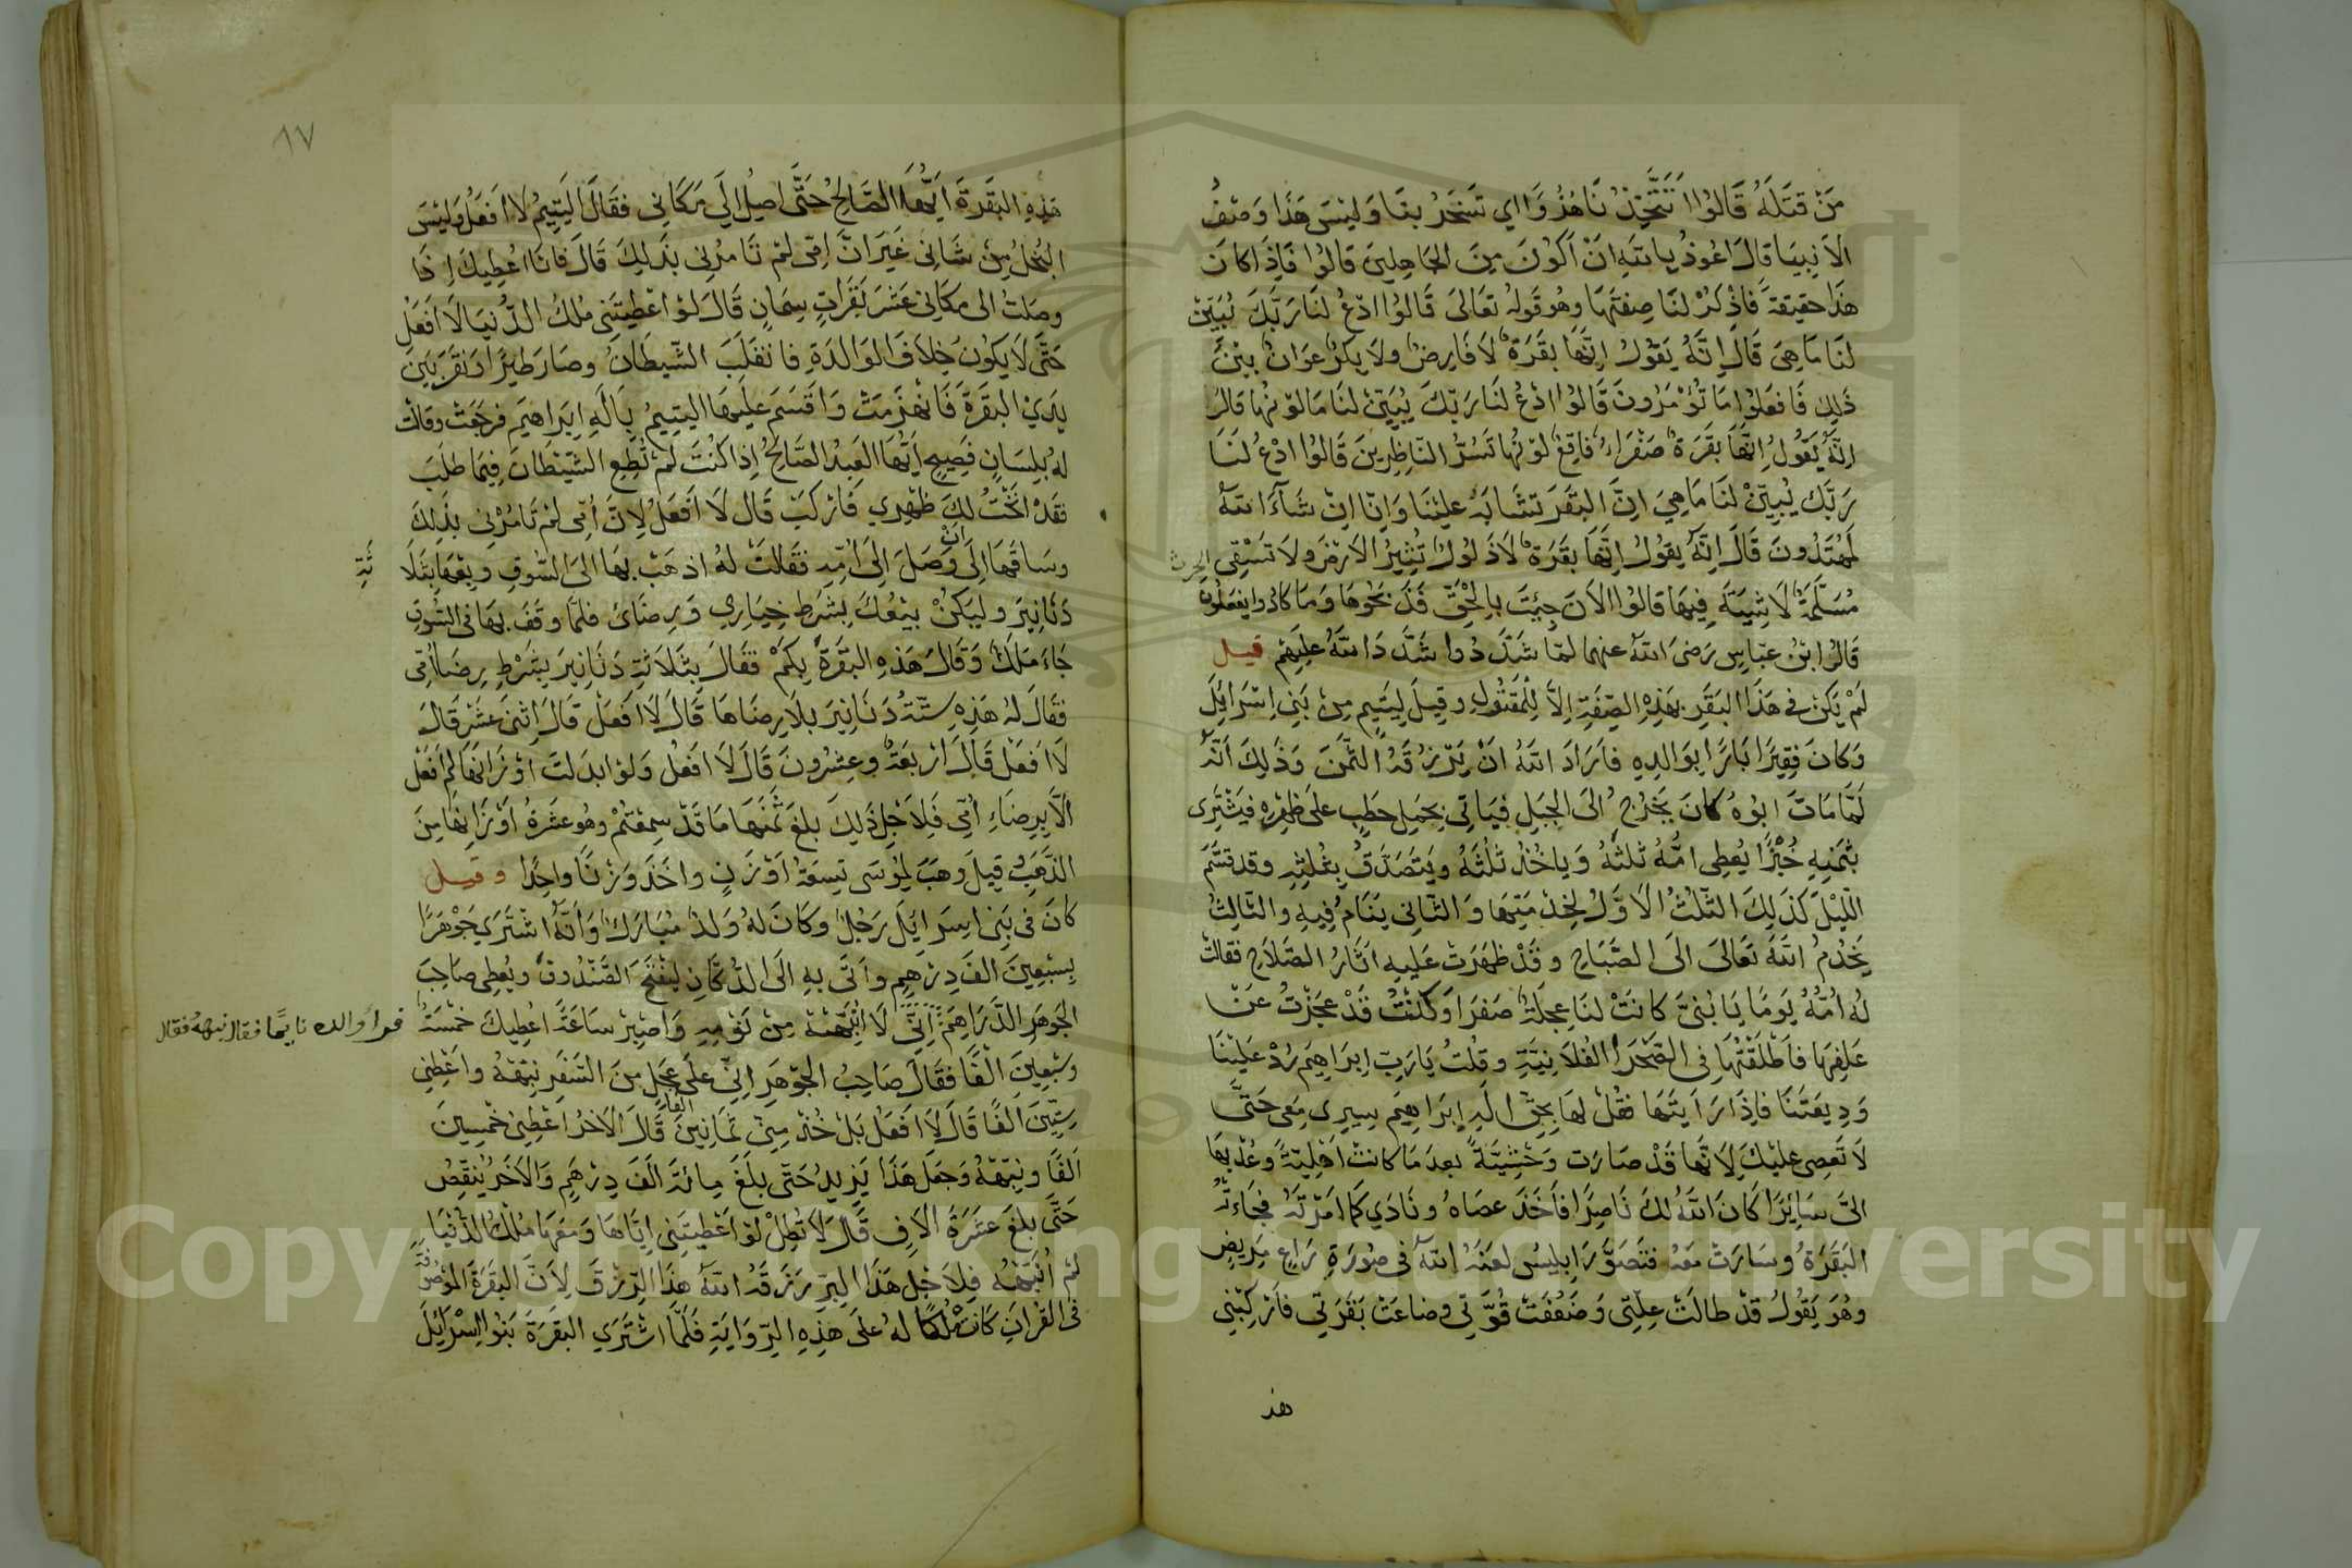 مَنْ قَتَلَهُ قَالُوا اَتَتَّخِذُنَا هُزُوًا اي تَسْخَرُ بنَا وَلَيْسَ هَذَا وَصْفُ
الاَنبِيَا قالَ اَعُوذُ بِاللهِ اَنْ اَكُونَ مِنَ الجَاهِلِينَ قَالُوا فَاِذَا كَانَ
هَذَا حقِيقةً فَاذْكُرْ لنَا صِفَتَهَا وهُو قَولهُ تَعَالىَ قَالُوا ادْعُ لنَا رَبَّكَ يُبَيِّنْ
لنَا مَا هِيَ قَالَ اِنَّهُ يَقُولُ اِنَّهَا بَقَرَةٌ لاَ فَارِضٌ ولاَ بِكْرٌ عَوَانٌ بيْنَ
ذَلِكَ فَافْعَلُوا مَا تُؤْمَرُونَ قَالُوا ادْعُ لنَا رَبّكَ يُبَيِّنْ لنَا مَا لوْنُهَا قالَ
اِنَّهُ يَقُولُ اِنَّهَا بَقَرَةٌ صَفْرَاءُ فَاقِعٌ لوْنُهَا تَسُرُّ النَّاظِرِينَ قَالُوا ادْعُ لنَا
رَبَّكَ يُبَيِّنْ لنَا مَا هِيَ اِنَّ البَقَرَ تشَابَهَ عليْنَا وَاِنَّا اِنْ شَآءَ اللهُ
لَمُهْتَدُونَ قَالَ اِنَّهُ يَقُولُ اِنَّهَا بَقَرَةٌ لاَ ذَلُولٌ تُثِيرُ الاَرْضَ ولاَ تَسْقِى الحرث
مُسَلَّمَةٌ لاَ شِيَةَ فِيهَا قَالُوا الآنَ جِئْتَ بِالْحَقِّ فَذَبَحُوهَا وَمَا كَادُوا يَفعَلُونَ
قَالَ ابْنُ عبّاسٍ رَضيَ اللهُ عنهما لمّا شَدَّدُوا شَدَّدَ اللهُ علَيْهِمْ قيل
لَمْ يَكُنْ في هَذَا البَقَرِ بهَذِهِ الصِّفَةِ اِلاَّ لِلْمَقْتُولِ وقِيلَ لِيَتِيمٍ مِنْ بَنِي اِسْرَايِلَ
وَكَانَ فَقِيرًا بَارًّا بِوَالِدِهِ فاَرَادَ اللهُ اَنْ يَرْزُقَهُ الثَّمَنَ وَذَلِكَ اَنَّهُ
لَمَّا مَاتَ ابُوهُ كانَ يَخْرُجُ الىَ الجبَلِ فيَاتِي بِحِمْلِ حطَبٍ علَى ظَهْرِهِ فيَشْتَرِى
بثَمَنِهِ خُبْزًا يُعْطِى امَّهُ ثلثَهُ وَيَاخُذُ ثُلُثَهُ ويَتَصَدَّقُ بِثُلثِهِ وقد قسَّمَ
اللّيْلَ كَذَلِكَ الثّلُثُ الاَوَّلُ لِخِدْمَتِهَا وَالثَّانِى يَنَامُ فِيهِ والثَّالِثُ
يَخْدُمُ اللهَ تَعَالىَ الىَ الصَّبَاحِ وقَدْ ظهَرَتْ عَليهِ اَثَارُ الصَّلاَحِ فقَالتْ
لهُ اُمُّهُ يَومًا يَا بُنَيَّ كانَتْ لنَا عِجلَةٌ صَفرَا وَكُنْتُ قَدْ عَجَزْتُ عَنْ
عَلفِهَا فاَطْلَقْتُهَا فِى الصَّحْرَا الفُلاَنِيَّةِ وقلْتُ يَارَبِّ اِبرَاهِيمَ رُدَّ عَليْنَا
وَدِيعَتَنَا فَاِذَا رَاَيتَهَا فقُلْ لهَا بِحَقِّ الَهِ اِبرَاهِيمَ سِيرِى مَعِى حَتَّى
لاَ تَعصِى عليْكَ لاَنَّهَا قَدْ صَارَتْ وَحْشِيَّةً بعدَمَا كانتْ اهْلِيَّةً وَعُدْ بِهَا
الىَّ سَايِرًا كَانَ اللهُ لكَ نَاصِرًا فاَخَذَ عصَاهُ ونَادَي كَمَا اَمَرْتهُ فجَاءَتهُ
البَقَرَةُ وسَارَتْ معَهُ فتَصَوَّرَ اِبلِيسُ لعَنَهُ اللهُ في صُورَةِ رَاعٍ مَرِيضٍ
وهُوَ يَقُولُ قدْ طالَتْ عِلَّتِى وَضَعُفَتْ قُوَّتِي وضَاعَتْ بَقَرَتِي فاَرْكِبْنِي
هذ
٨٧
هَذِهِ البَقَرَةَ ايُّهَا الصَّالِحُ حَتَّى اصِلَ الَي مَكَانِي فقَالَ اليَتِيمُ لاَ اَفعَلُ وَليْسَ
البُخلُ مِنْ شَانِى غَيرَ اَنَّ اِمّى لمْ تَامُرْنِى بذَلِكَ قَالَ فَانَا اعُطِيكَ اِذَا
وصَلتُ الى مكَانِى عَشْرَ بَقَرَاتٍ سِمَانٍ قَالَ لوْ اعْطَيتَنِى مُلكَ الدُّنيَا لاَ اَفعَلُ
حَتَّى لاَ يَكُونَ خِلاَفَ الوَالدَةِ فانفَلَبَ الشَّيطَانُ وصَارَ طيرًا وَنَقَرَ بَينَ
يدَيْ البَقَرَةَ فَانهَزَمَتْ وَاَقسَمَ عليهَا اليَتِيمُ بِاَلَهِ اِبرَاهِيمَ فرجَعَتْ وقالتْ
لهُ بِلِسَانٍ فَصِيحٍ اَيُّهَا العَبدُ الصَّالحُ اِذا كُنْتَ لمْ تُطِعِ الشّيْطَانَ فِيمَا طلَبَ
فقَدْ انَخْتُ لكَ ظَهرِي فَارْكَبْ قَال لاَ اَفْعَلُ لاَنَّ اُمّى لمْ تَامُرْنِى بذَلِكَ
وسَاقَهَا اِلَى انْ وَصَلَ اِلَى اُمّهِ فقَالتْ لهُ اذهَبْ بهَا الىَ السُّوقِ وَبِعْهَا بثَلاَ ثَةِ
دَنَانِيرَ وليَكُنْ بيْعُكَ بِشَرطِ خِيَارِي وَرِضَائ فلمَّا وقَفَ بهَا في السُّوقِ
جَاءَ مَلَكٌ وَقَالَ هَذِهِ البَقَرَةُ بِكَمْ فقَالَ بِثَلاَثَةِ دَنَانِيرَ بِشَرْطِ رِضَا اُمِّى
فقَالَ لهُ هَذِهِ سِتّةُ دَنَانِيرَ بلاَ رِضَاهَا قَالَ لاَ اَفعَلُ قَالَ اِثْنَى عشَرَ قَالَ
لاَ اَفعَلُ قَالَ اَرْبَعَةٌ وعِشْرُونَ قَالَ لاَ اَفعَلُ وَلوْ ابدَلتَ اوْزَانهَا لمْ افعَلْ
اَلاَّ بِرِضَاءِ اُمِّي فَلاَجْلِ ذَلِكَ بلغَ ثمَنُهَا مَا قَدْ سِمعْتُمْ وهُو عشَرَةُ اَوْزَانِهَا مِنَ
الذَّهَبِ قِيلَ وهَبَ لِمُوسَى تِسعَةُ اَوْزَنٍ واخَذَ وَزْنًا واحِدًا وقيل
كَانَ فى بَنِى اِسرَايَلَ رَجُلٌ وكَانَ لهُ وَلدٌ مُبَارَكٌ وَاَنَّهُ اشْتَرَى جَوْهَرًا
بِسَبْعِينَ الفَ دِرْهِمٍ واَتَى بهِ الَى الدُّكَّانِ ليَفْتَحَ الصَّنْدُوقَ ويُعطِى صَاحِبَ
الجَوْهَرِ الدَّرَاهِمَ اِنِّي لاَ اُنَبِّهُهُ مِنْ نَوْمِهِ وَاصْبِرْ سَاعَةً اعُطِيكَ خَمْسَةً
فرأَ والده نايمًا فقال نبهه فقال
وسَبْعِينَ الْفًا فقَالَ صَاحِبُ الجَوْهَرِ اِنِّى علَى عَجَلٍ مِنَ السَّفَرِ نبّهْهُ واعْطِنِي
سِتِّينَ الفًا قَالَ لاَ اَفعَلُ بَلْ خُذْ مِنِّى ثَمَانِينَ الفًا قَالَ الاخَرُ اعْطِنِى خَمْسِينَ
اَلفًا ونبّهْهُ وَجَعَلَ هَذَا يَزِيدُ حَتَّى بلَغَ مِائَةَ الَفَ دِرْهَمٍ وَالاَخَرُ يَنْقُصُ
حَتَّى بلغَ عشَرَةَ الاَفٍ قَالَ لاَ تُطِلْ لوْ اَعْطيتَنِى اِيّاهَا وَمعَهَا مُلكَ الدُّنيَا
لمْ اُنَبِّهْهُ فلاَجْلِ هَذَا البِرِّ رَزَقَهُ اللهُ هذَا الرِّزْقَ لاَنَّ البَقَرَةَ المَوْصُوفَةَ
فى القُرانِ كَانتْ مُلْكًا لهُ علَى هَذِهِ الرِّوَايَةِ فَلَمَّا اشْتَرَي البَقَرَةَ بَنُوا اِسْرَايَلَ
Copyright © King Saud University